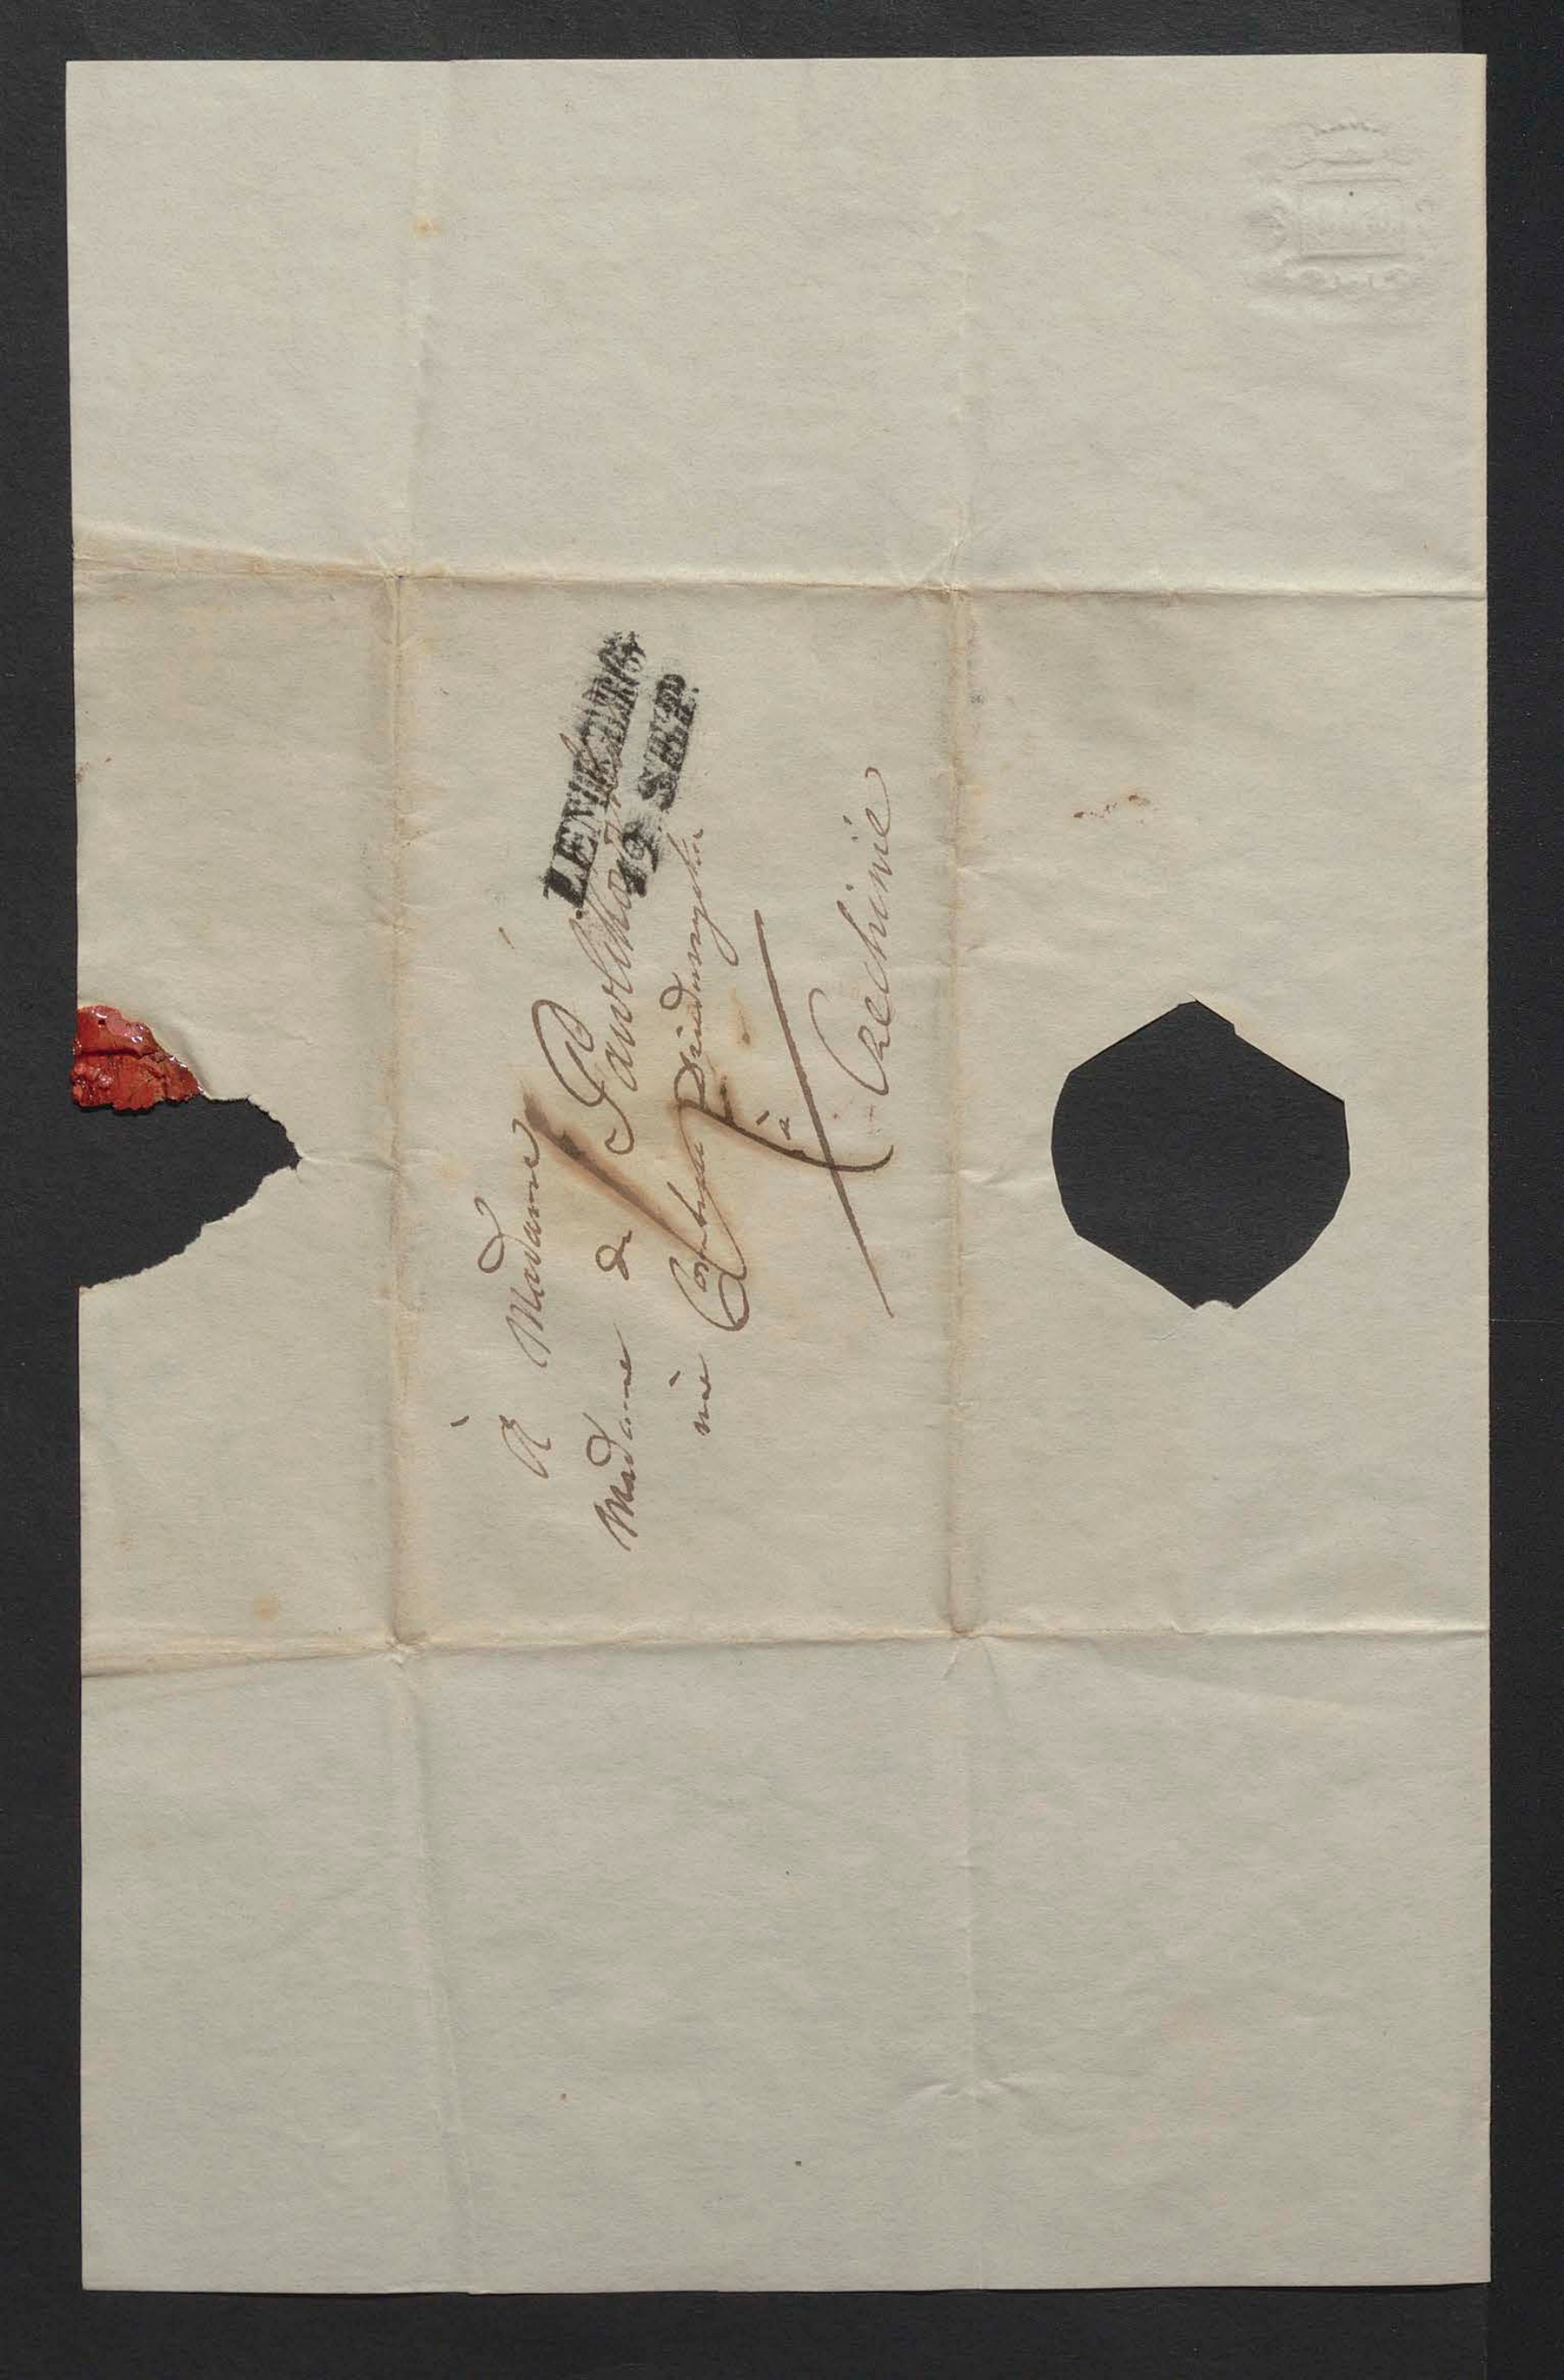 À Madame
Madame de Pawlikowska
née Comtesse Dzieduszycka
à
Czechinie
LEMBERG
19. SEPT.